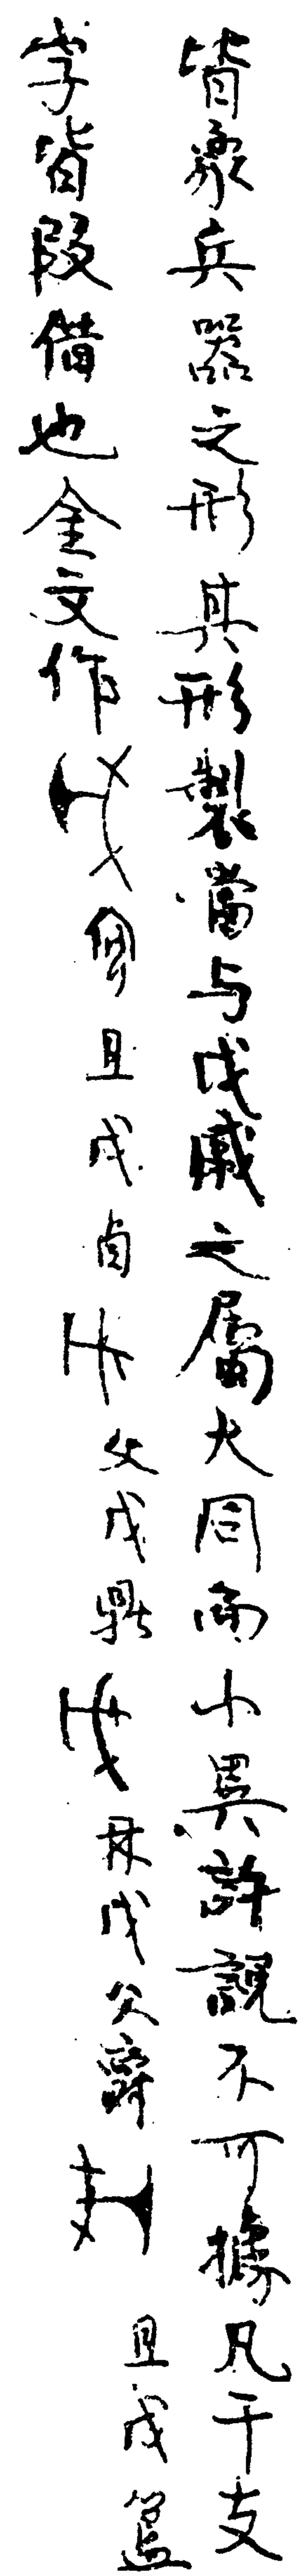 皆象兵器之形其形製當与戉戚之屬大同而小異許説不可據凡干支
字皆叚借也金文作且戊卣父戊鼎戊父爵且戊簋